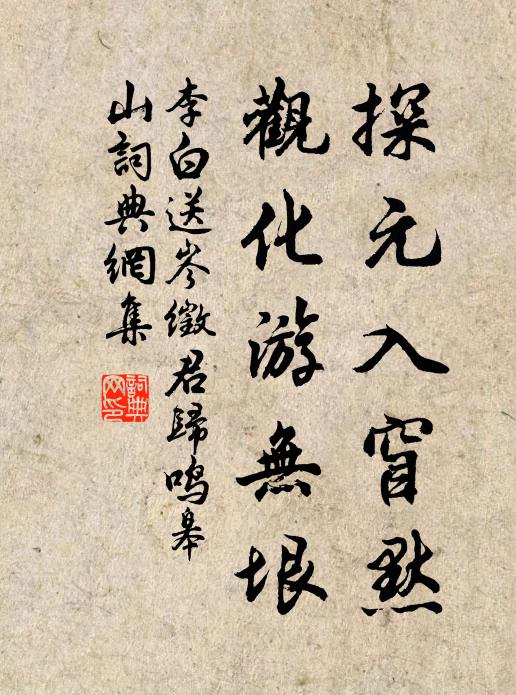 探元入窅默
觀化游無垠
李白送岑徵君歸鳴皋
山詞典網集
詞典
网印